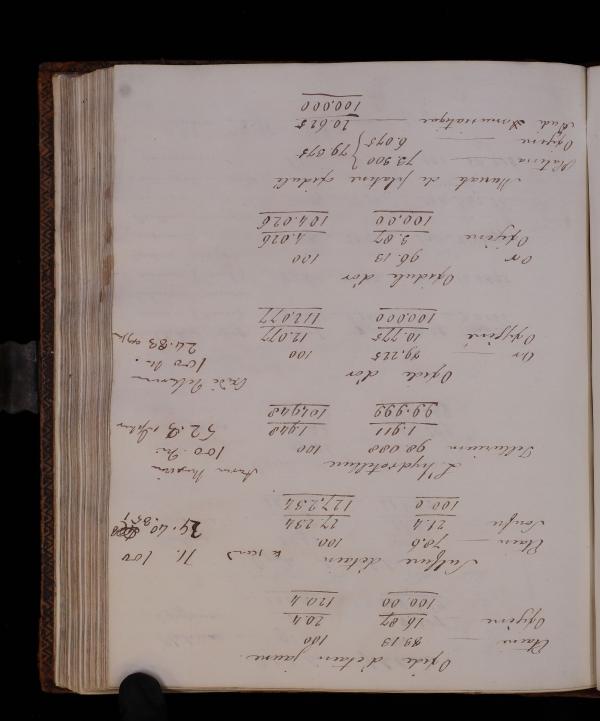 Oxide d'étain jaune.
Etain — 83.13 100
Oxygène — 16.87 20.4
100.00 120.4
Sulfure d'étain
Etain — 78.6 100.
Soufre 21.4 27.234
100.0 127.234
71. 100
29.40.851
L'Hydrotellure
Tellurium 98.088 100
1.911 1,948
99.999 101,948
100.
52.
Oxide d'or
Or — 89,225 100
Oxygène 10.775 12.077
100.000 112.077
Oxide Tellurium
100
24.83 oxy
Oxidule d'or
Or 96.13 100
Oxigène 3.87 4.026
100.00 104.026
Muriate de platine oxidulé
Platina — 73.300
Oxygène — 6.075 } 79.375
Acid. — 20.625
100.000